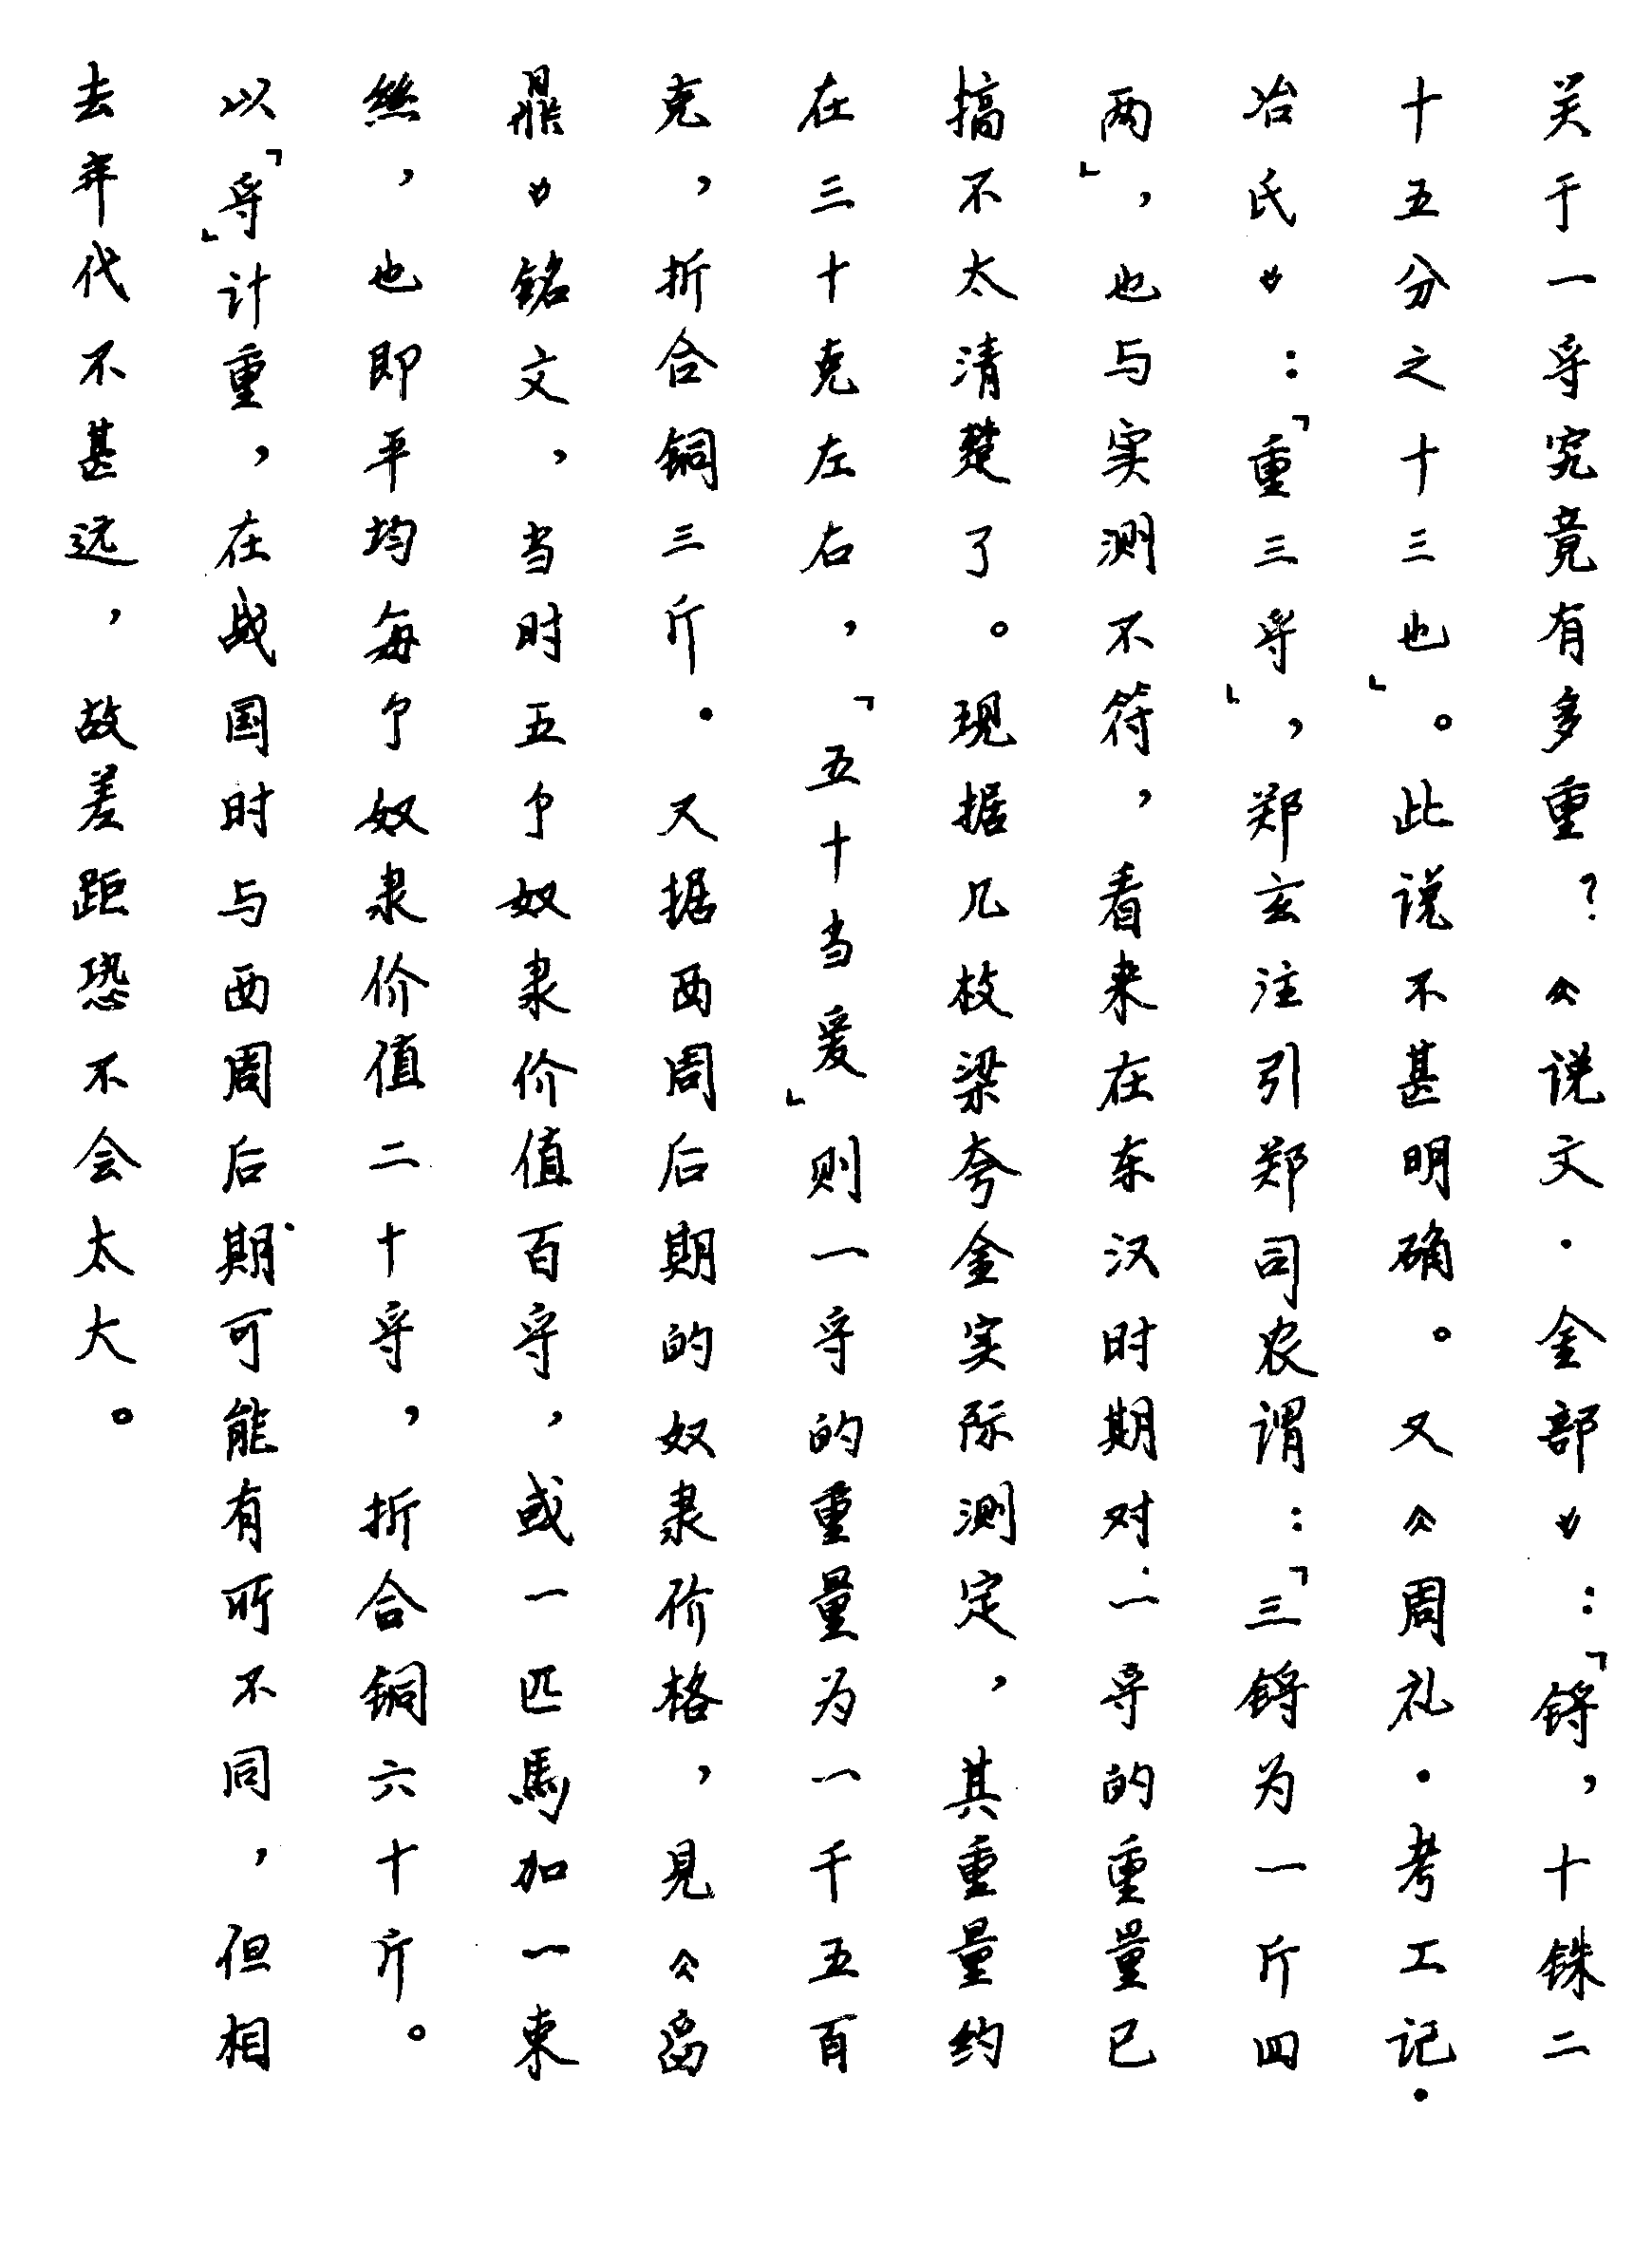 关于一寽究竟有多重？《说文·金部》：「锊，十铢二
十五分之十三也」。此说不甚明确。又《周礼·考工记·
冶氏》：「重三寽」，郑玄注引郑司农谓：「三锊为一斤四
两」，也与实测不符，看来在东汉时期对一寽的重量已
搞不太清楚了。现据几枚梁夸金实际测定，其重量约
在三十克左右，「五十当爰」则一寽的重量为一千五百
克，折合铜三斤。又据西周后期的奴隶价格，見《曶
鼎》铭文，当时五个奴隶价值百寽，或一匹馬加一束
丝，也即平均每个奴隶价值二十寽，折合铜六十斤。
以「寽」计重，在战国时与西周后期可能有所不同，但相
去年代不甚远，故差距恐不会太大。